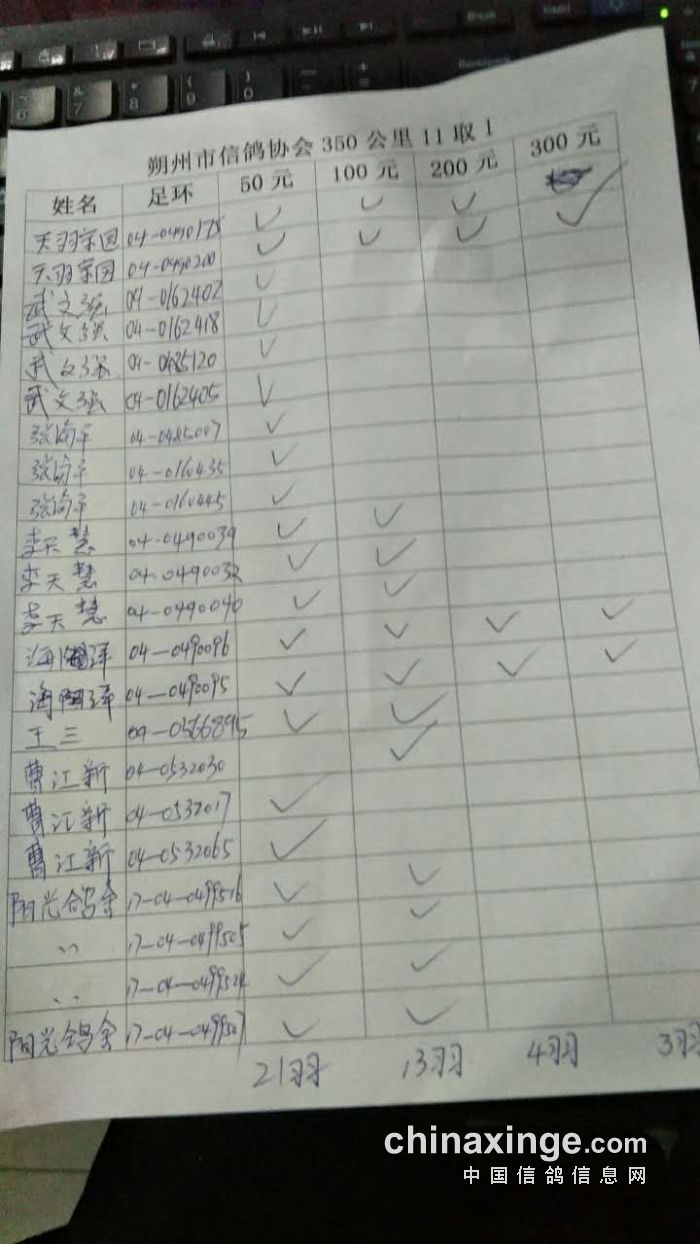 朔州市信鸽协会 350 公里 11 取 1
姓名 足环 50 元 100 元 200 元 300 元
天羽宗园 04-0490178 ✓ ✓ ✓
天羽宗园 04-0490200 ✓ ✓ ✓ ✓
武文强 04-0162402 ✓
武文强 04-0162418 ✓
武文强 04-0485120 ✓
武文强 04-0162405 ✓
张海平 04-0485007 ✓
张海平 04-0160435 ✓
张海平 04-0160445 ✓
李天慧 04-0490039 ✓ ✓
李天慧 04-0490032 ✓ ✓
李天慧 04-0490040 ✓ ✓
海 洋 04-0490096 ✓ ✓ ✓ ✓
海 洋 04-0490095 ✓ ✓ ✓ ✓
王三 04-0566895 ✓ ✓
曹江新 04-0532030 ✓
曹江新 04-0532017 ✓
曹江新 04-0532065 ✓
阳光鸽舍 17-04-0499516 ✓ ✓
、、 17-04-0499505 ✓ ✓
、、 17-04-0499524 ✓ ✓
阳光鸽舍 17-04-0499507 ✓ ✓
21羽 13羽 4羽 3羽
chinaxinge.com
中国信鸽信息网